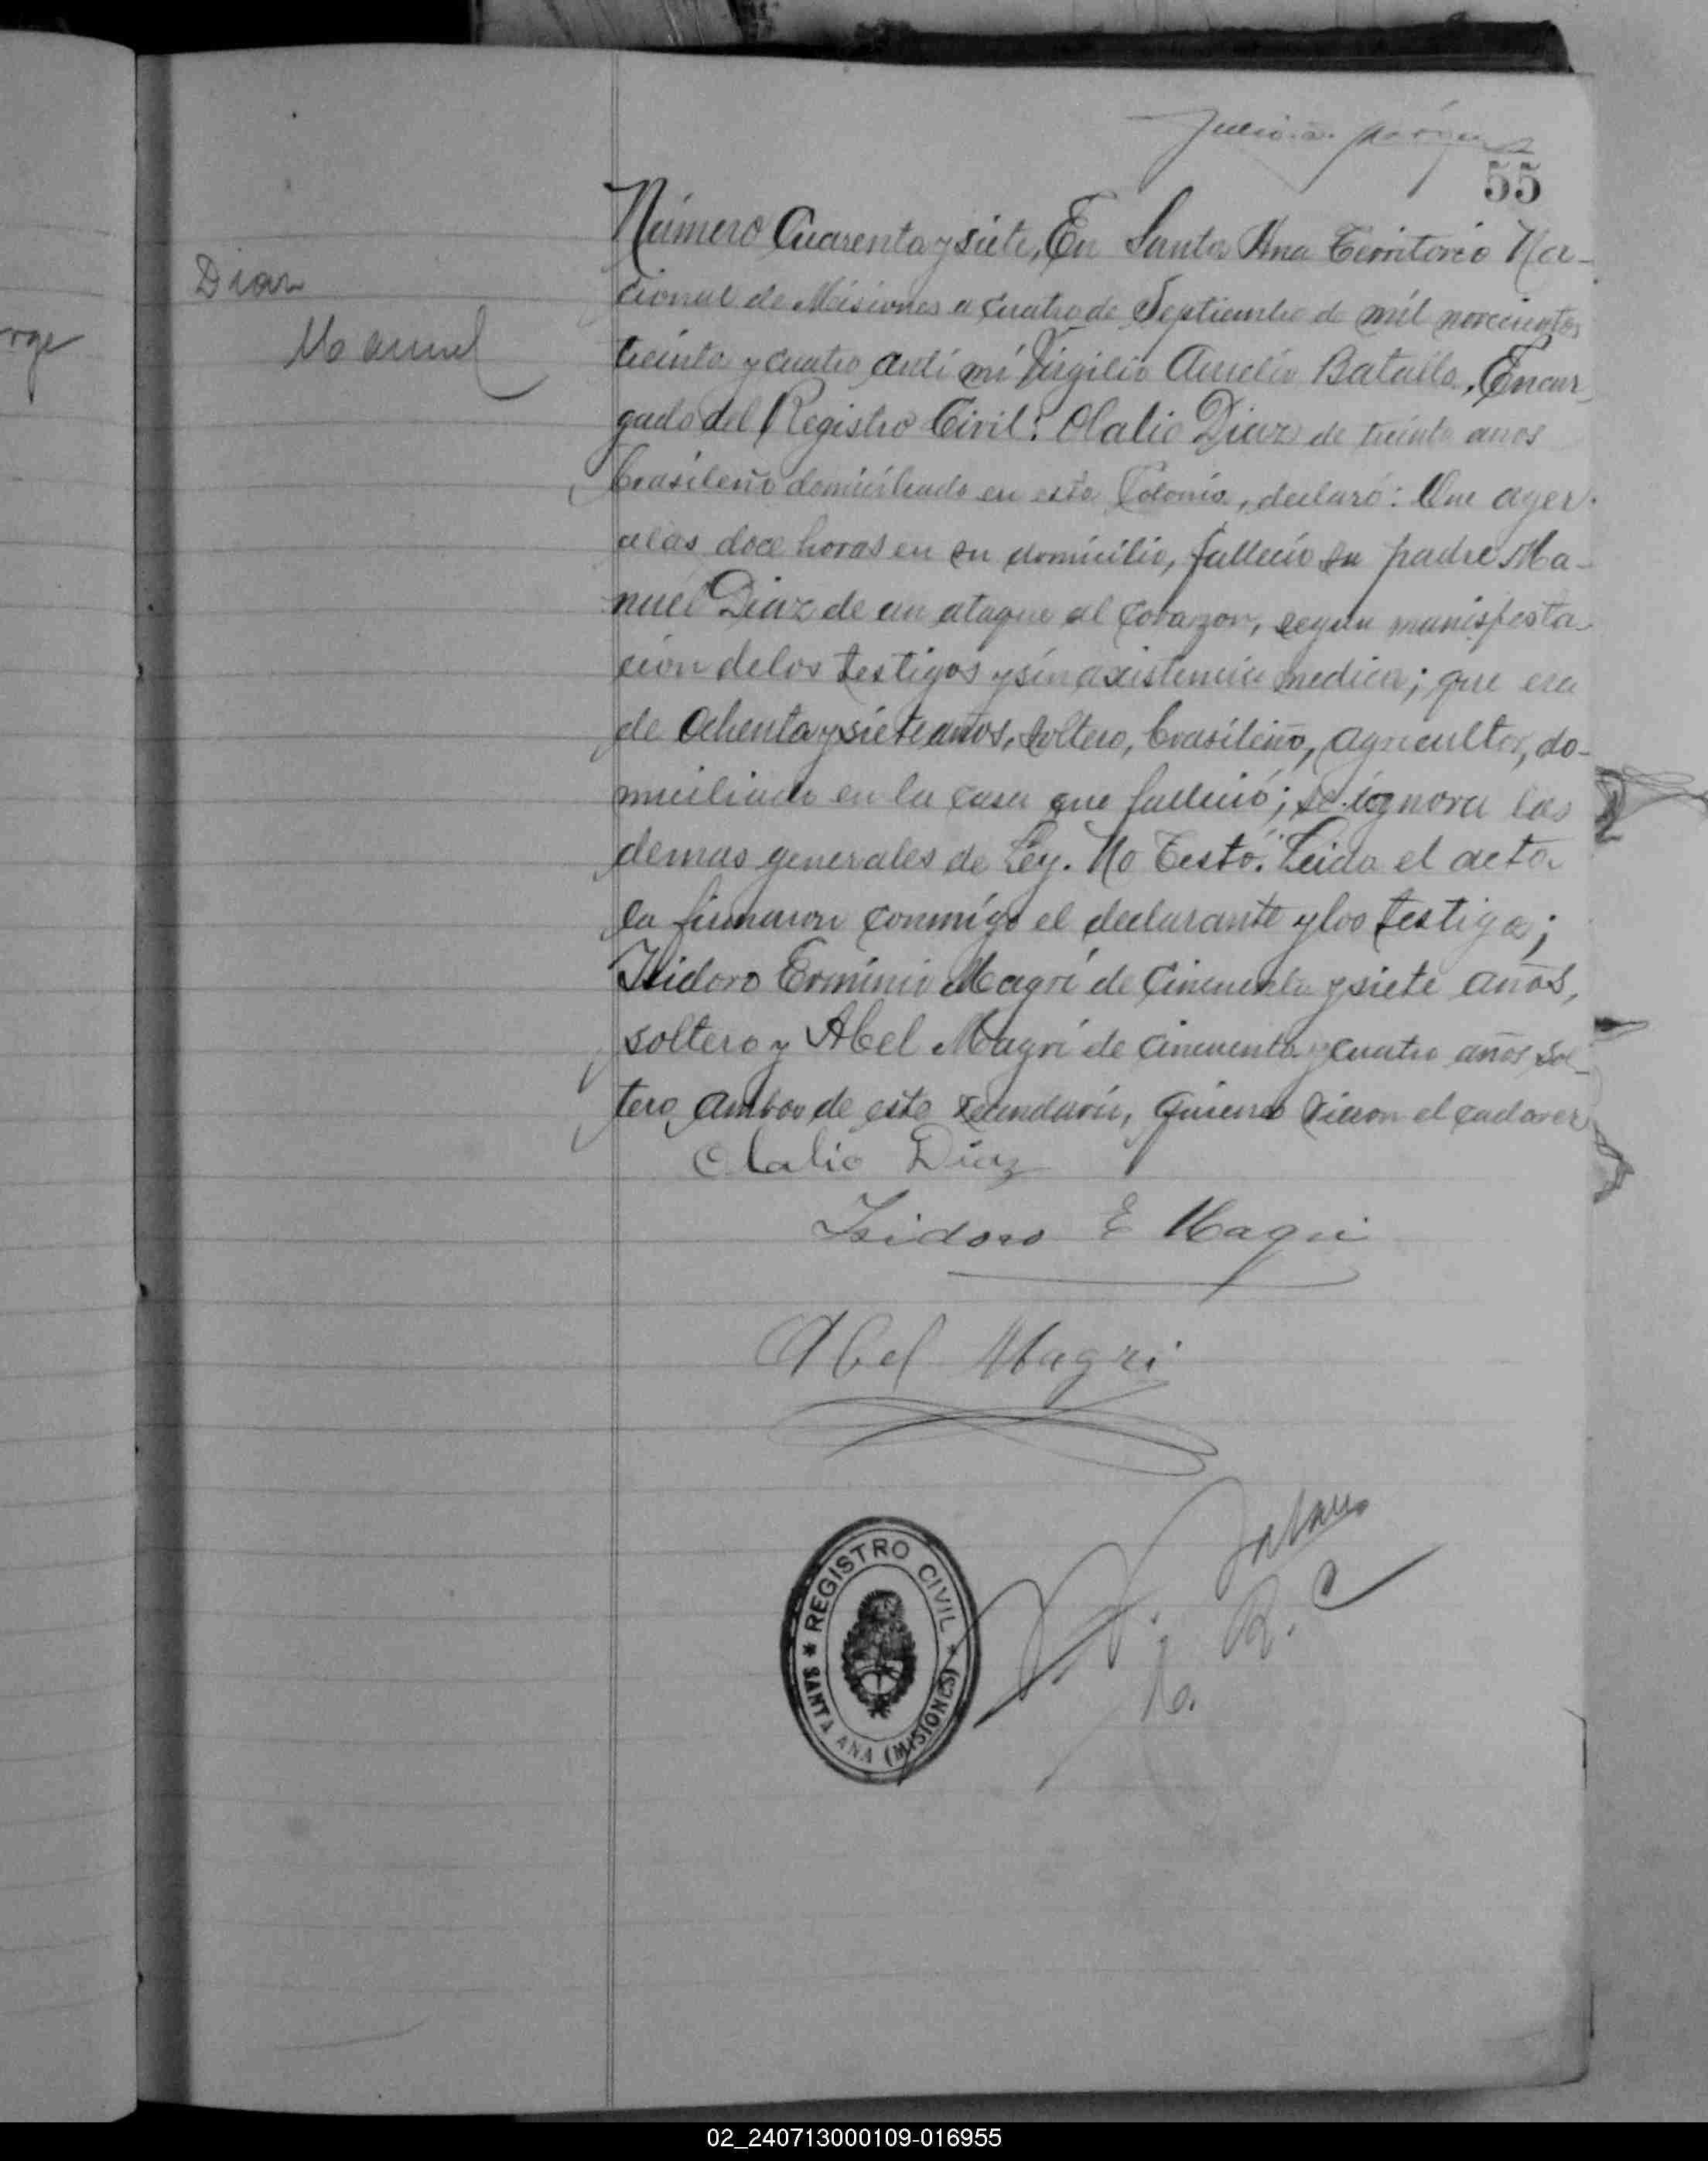 55
Número Cuarenta y siete, En Santa Ana Territorio Na-
cional de Misiones a cuatro de Septiembre de mil novecientos
treinta y cuatro anti mí Virgilio Aurelio Batalla, Encar-
gado del Registro Civil: Olalio Diaz de treinta anos
brasileño domiciliado en esta Colonia, declaró: Que ayer
a las doce horas en su domicilio, fallecio su padre Ma-
nuel Diaz de un ataque al corazon, segun manisfesta-
cion de los testigos y sin axistencia medica; que era
de ochenta y siete años, soltero, brasileño, agricultor, do-
miciliado en la casa que falleció; se ignora las
demas generales de Ley. No Testó. Leida el acta
la firmaron conmígo el declarante y los testigo;
Isidoro Erminio Magri de cincuenta y siete años,
soltero y Abel Magri de cincuenta y cuatro años sol-
tero, ambos de este vecindario, quienes vieron el cadaver
Olalio Diaz
Isidoro E Magri
Abel Magri
REGISTRO CIVIL
SANTA ANA (MISIONES)
R. C
Diaz
Manuel
rge
02_240713000109-016955